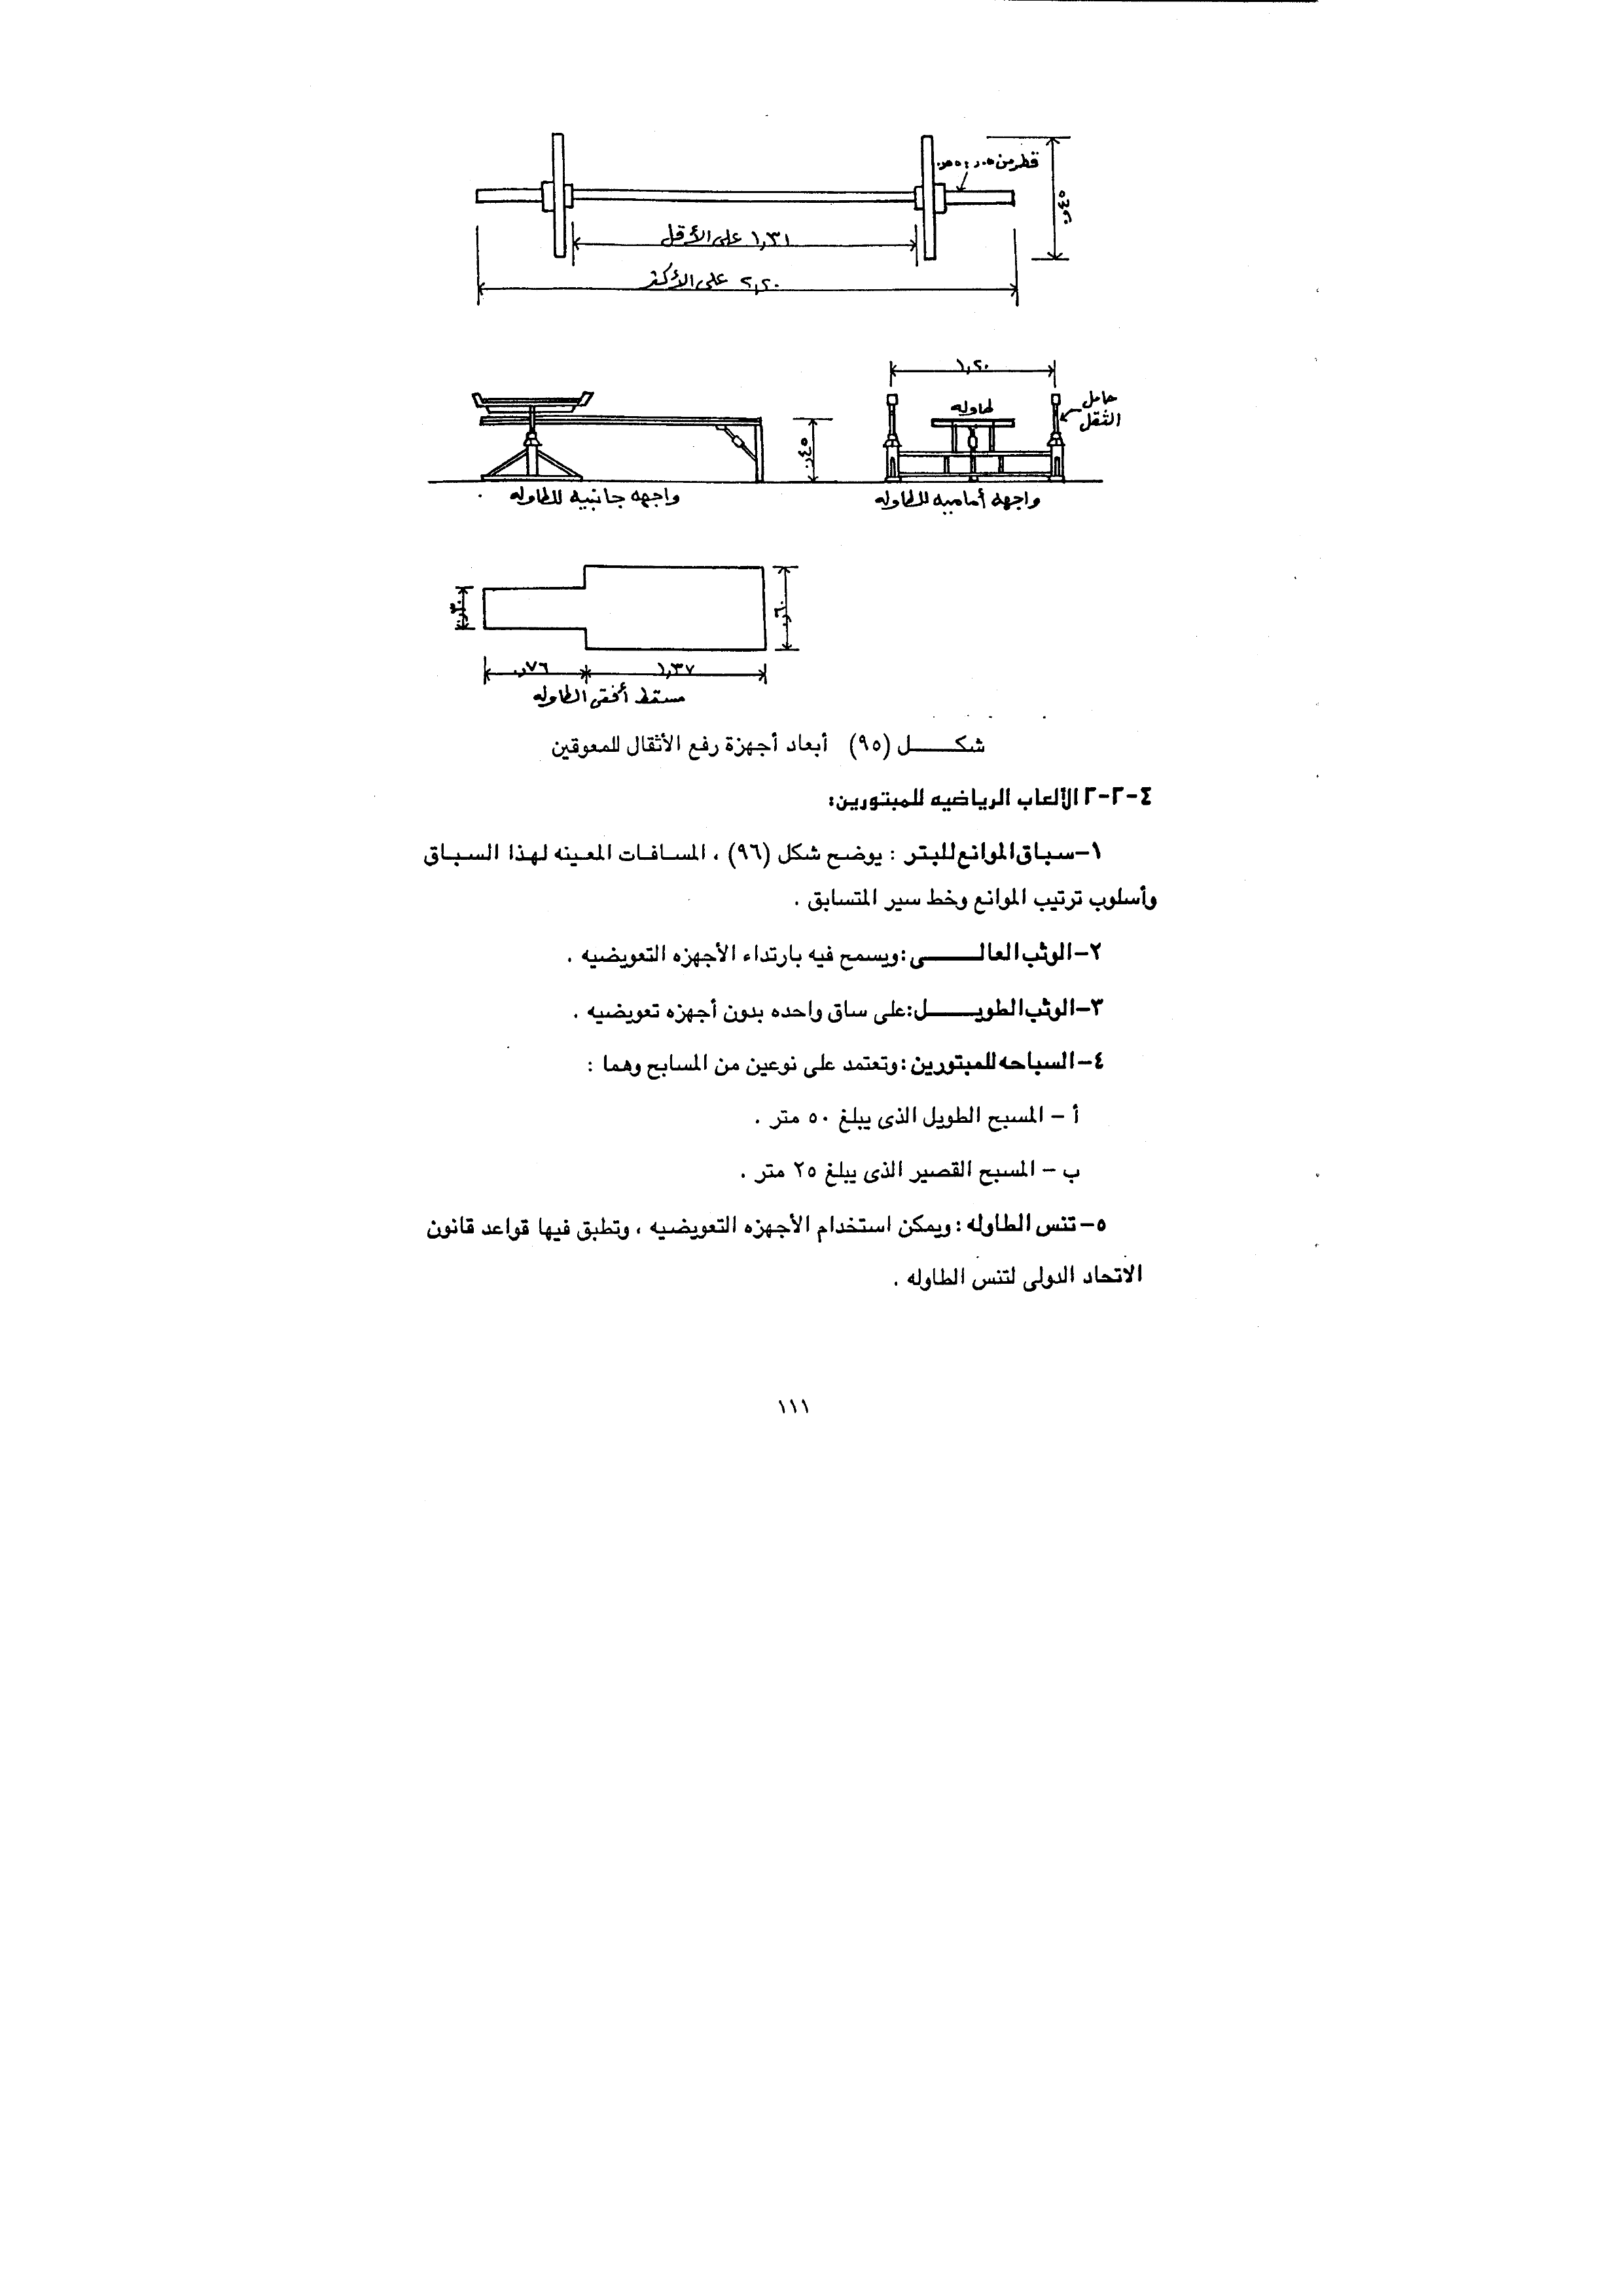 ٠,٤٥
١,٣١ على الأقل
٢,٢٠ على الأكثر
١,٢٠
حامل
الثقل
طاوله
٠,٤٥
واجهه أماميه للطاوله
واجهه جانبيه للطاوله
٠,٣٠
٠,٦٠
١,٣٧
٠,٧٦
مسقط أفقى الطاوله
شكــــل (٩٥) أبعاد أجهزة رفع الأثقال للمعوقين
٤-٢-٢ الألعاب الرياضيه للمبتورين:
١-سباق الموانع للبتر : يوضح شكل (٩٦) ، المسافات المعينه لهذا السباق
وأسلوب ترتيب الموانع وخط سير المتسابق .
٢-الوثب العالــــى :ويسمح فيه بارتداء الأجهزه التعويضيه .
٣-الوثب الطويــــل:على ساق واحده بدون أجهزه تعويضيه .
٤-السباحه للمبتورين :وتعتمد على نوعين من المسابح وهما :
أ - المسبح الطويل الذى يبلغ ٥٠ متر .
ب - المسبح القصير الذى يبلغ ٢٥ متر .
٥-تنس الطاوله : ويمكن استخدام الأجهزه التعويضيه ، وتطبق فيها قواعد قانون
الاتحاد الدولى لتنس الطاوله .
١١١